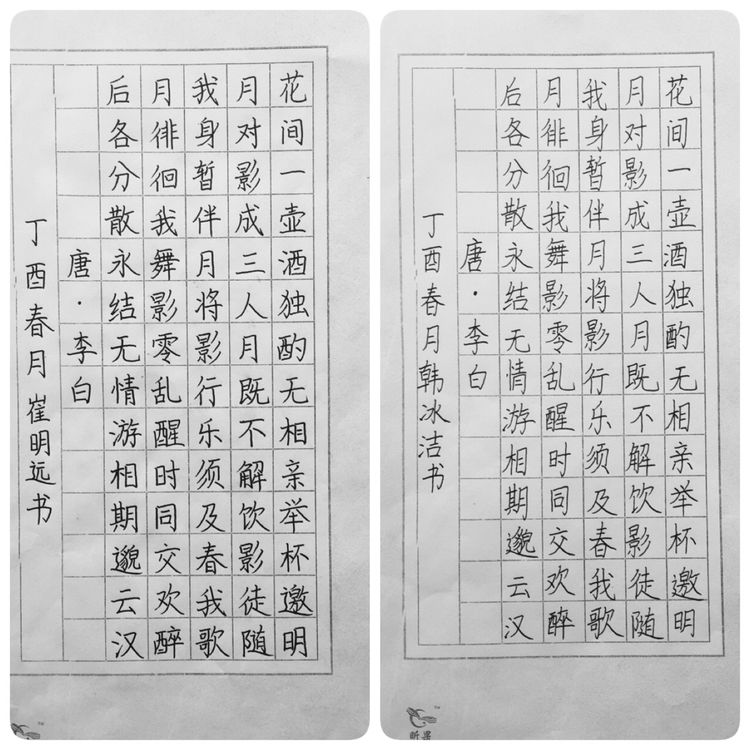 花间一壶酒独酌无相亲举杯邀明
月对影成三人月既不解饮影徒随
我身暂伴月将影行乐须及春我歌
月徘徊我舞影零乱醒时同交欢醉
后各分散永结无情游相期邈云汉
唐·李白
丁酉春月崔明远书
花间一壶酒独酌无相亲举杯邀明
月对影成三人月既不解饮影徒随
我身暂伴月将影行乐须及春我歌
月徘徊我舞影零乱醒时同交欢醉
后各分散永结无情游相期邈云汉
唐·李白
丁酉春月韩冰洁书